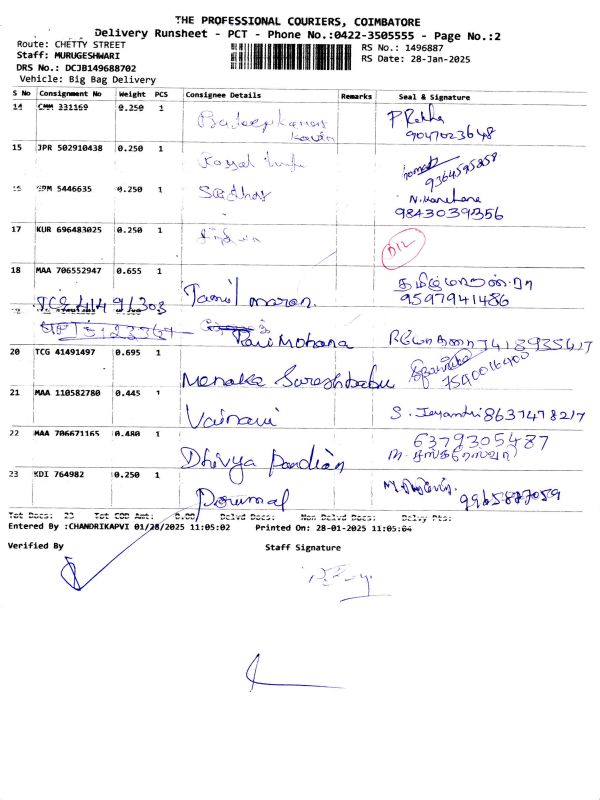 THE PROFESSIONAL COURIERS, COIMBATORE
Delivery Runsheet - PCT - Phone No.:0422-3505555 - Page No.:2
Route: CHETTY STREET
RS No.: 1496887
Staff: MURUGESHWARI
RS Date: 28-Jan-2025
DRS No.: DCJB149688702
Vehicle: Big Bag Delivery
S No Consignment No Weight PCS Consignee Details Remarks Seal & Signature
14 CMM 331169 0.250 1 P Rekha
9047023648
15 JPR 502910438 0.250 1 Royal
9364595858
5446635 0.250 1
9843039356
17 KUR 696483025 0.250 1 D12
18 MAA 706552947 0.655 1 Tamil maran
9597941486
TCG 41491303
Pari Mohana 7418935417
20 TCG 41491497 0.695 1 Menaka Sureshbabu 7540016400
21 MAA 110582780 0.445 1 Vainavi S. Jeyandri 8637478217
22 MAA 706671165 0.480 1 Dhivya Pandian 6379305487
23 KDI 764982 0.250 1 Perumal 9965887059
Tot Docs: 23 Tot COD Amt: 0.00 Delvd Docs: Non Delvd Docs: Delvy Pts:
Entered By :CHANDRIKAPVI 01/28/2025 11:05:02 Printed On: 28-01-2025 11:05:04
Verified By Staff Signature